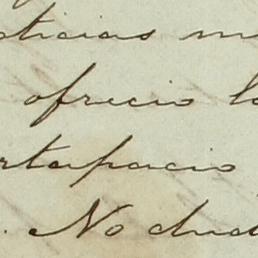 ticias m
ofrecio l
rtapacio
. No dud